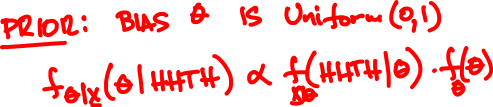 PRIOR: BIAS θ IS Uniform(0,1)
f_{θ|X}(θ|HHTH) ∝ f_{X|θ}(HHTH|θ) · f_θ(θ)